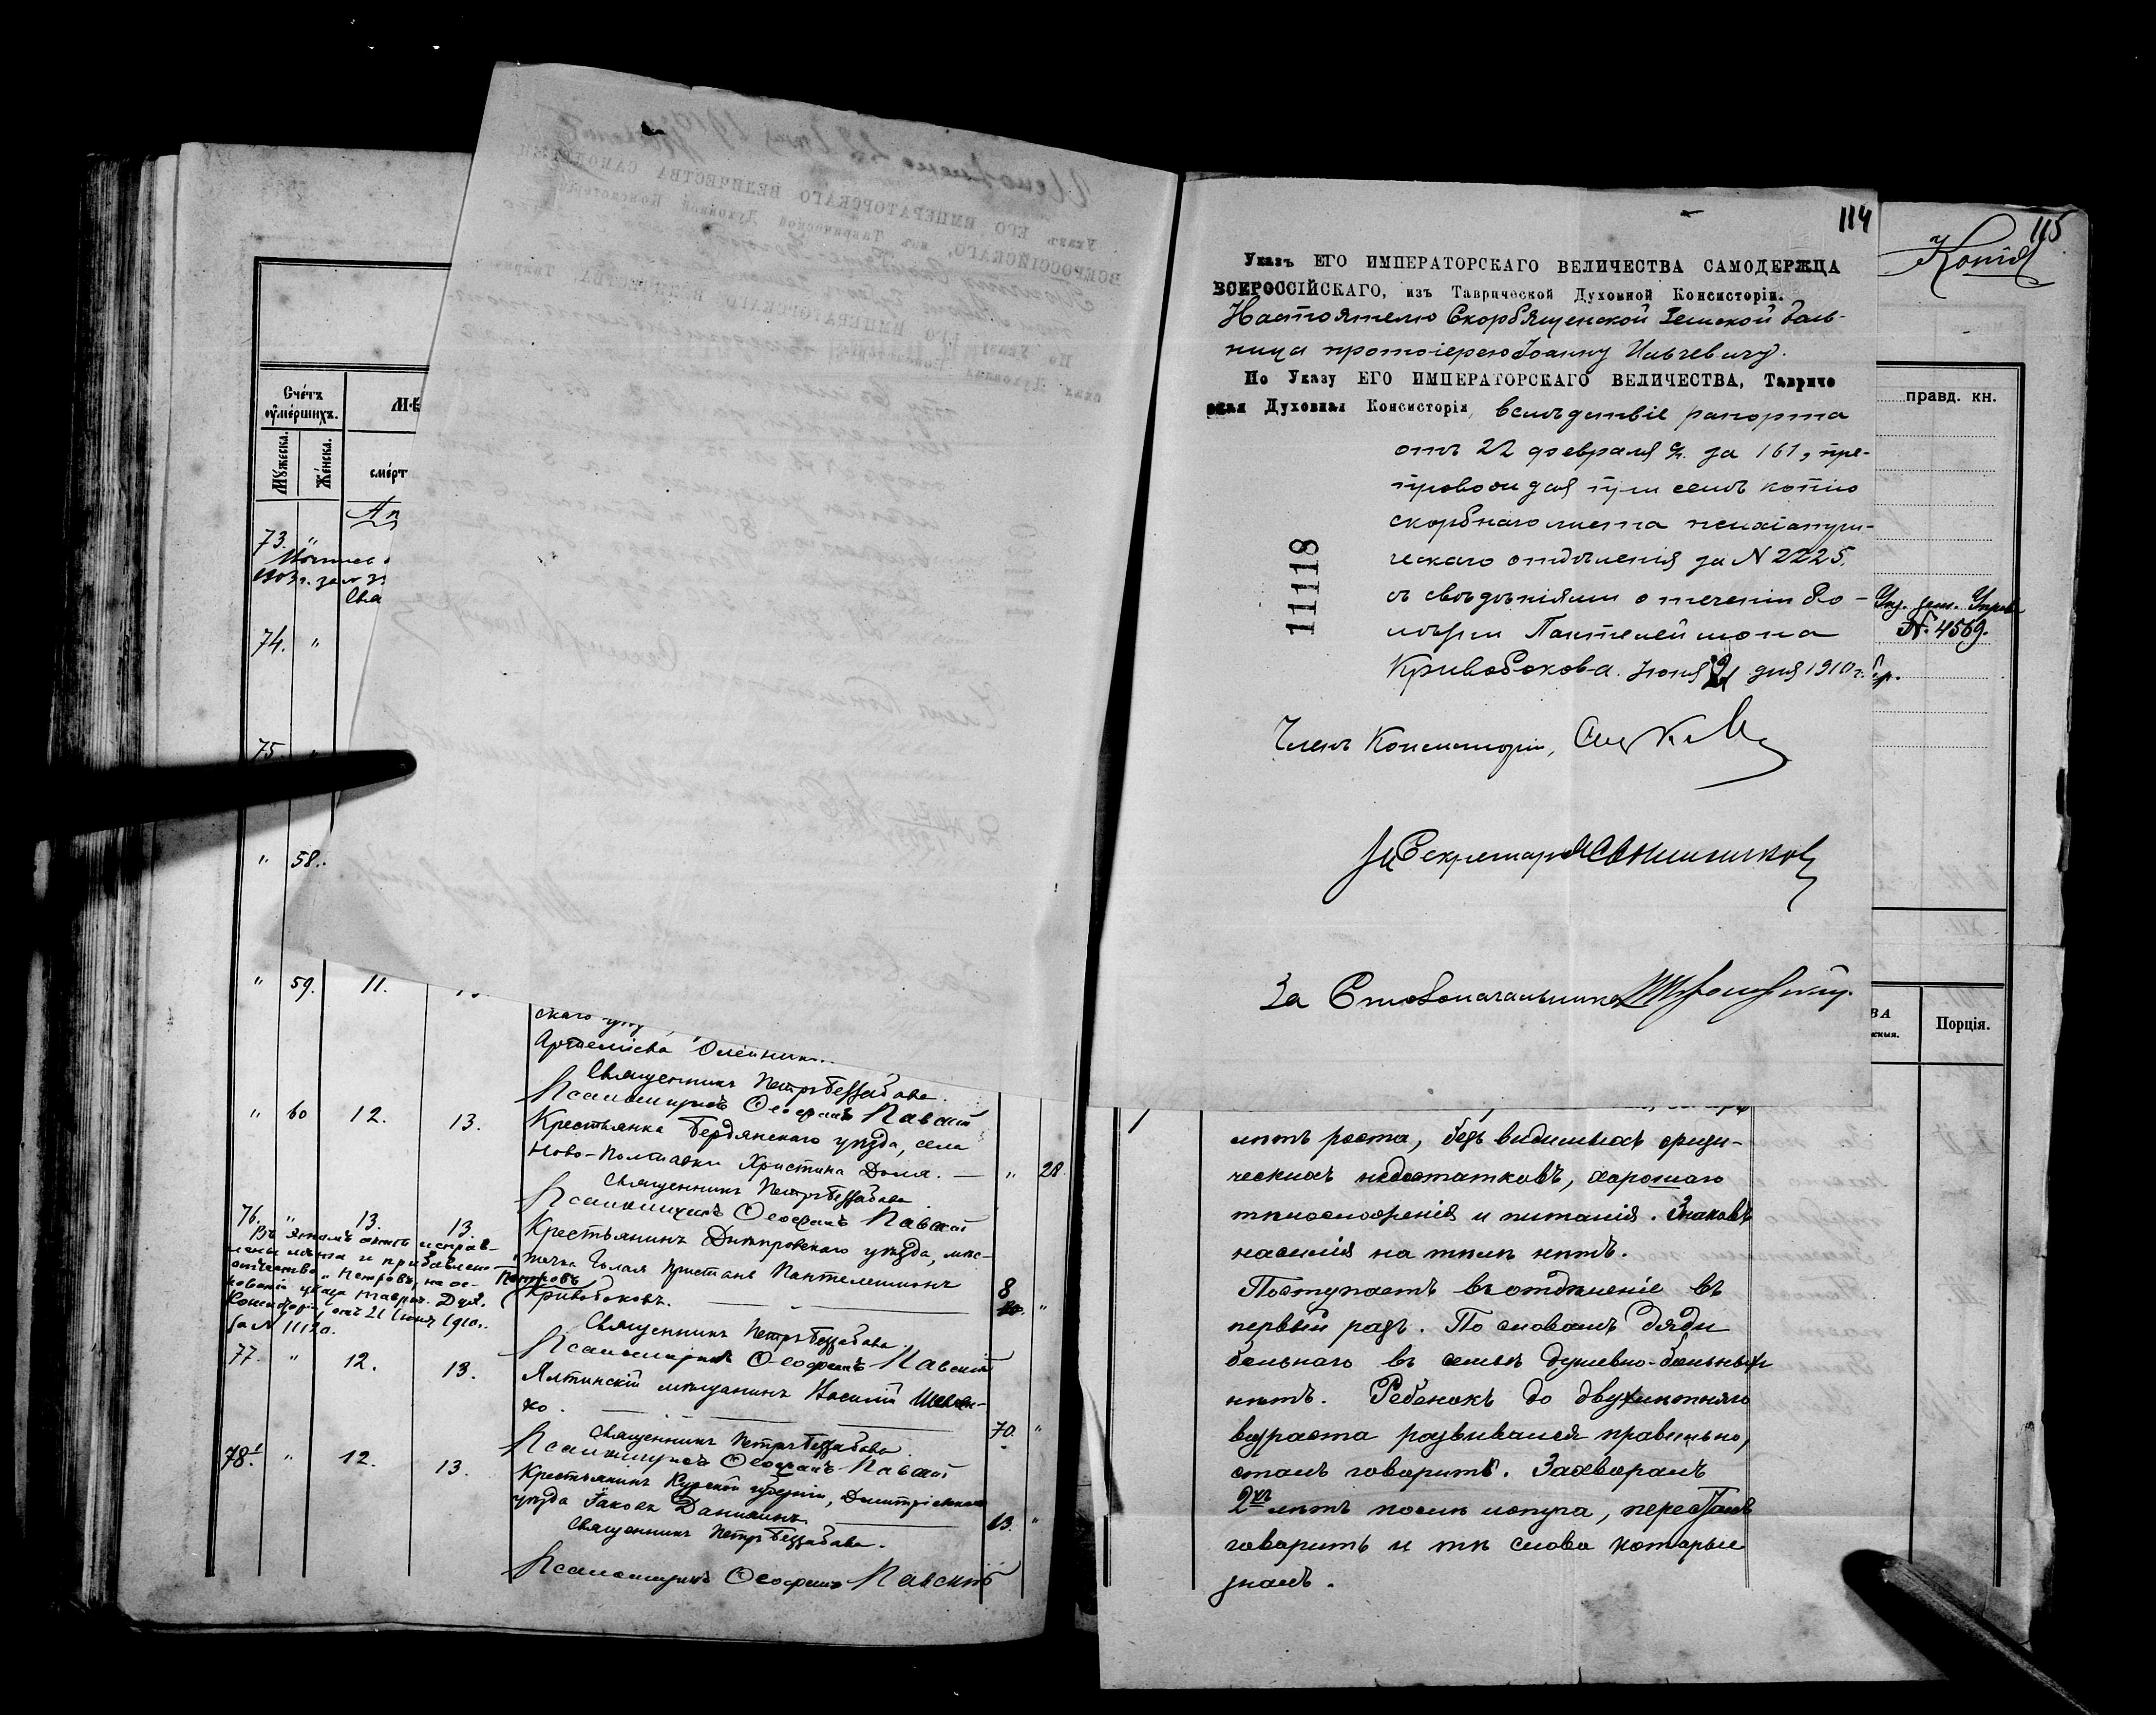 Счетъ
оумершихъ.
Мужеска.
Женска.
смерт
73. "
74. "
75.
" 58.
" 59. 11.
скаго
Священникъ Петръ Беззабава.
Псаломщикъ Ѳеофанъ Павскій
" 60 12. 13. Крестьянка Бердянскаго уѣзда, села
Ново-Полтавки Христина Доля. — " 28.
Священникъ Петръ Беззабава
Псаломщикъ Ѳеофанъ Павскій
76. " 13. 13. Крестьянинъ Днѣпровскаго уѣзда, мѣс-
течка Голая Пристань Пантелеимонъ
Петровъ
Кривобоковъ. 8 "
Въ этомъ актѣ исправ-
лены лѣта и прибавлено
отчество „Петровъ„ на ос-
нованіи указа Таврич. Дух.
Консисторіи отъ 21 Іюня 1910г.
за N 11120.
Священникъ Петръ Беззабава.
Псаломщикъ Ѳеофанъ Павскій
77. " 12. 13. Ялтинскій мѣщанинъ Василій Шевчен-
ко. 70. "
Священникъ Петръ Беззабава.
Псаломщикъ Ѳеофанъ Павскій
78. " 12. 13. Крестьянинъ Курской губерніи, Дмитріевскаго
уѣзда Іаковъ Данилинъ. 43. "
Священникъ Петръ Беззабава.
Псаломщикъ Ѳеофанъ Павскій
114
Указъ ЕГО ИМПЕРАТОРСКАГО ВЕЛИЧЕСТВА САМОДЕРЖЦА
ВСЕРОССІЙСКАГО, изъ Таврической Духовной Консисторіи.
Настоятелю Скорбященской Земской боль-
ницы протоіерею Іоанну
По Указу ЕГО ИМПЕРАТОРСКАГО ВЕЛИЧЕСТВА, Тавриче
ская Духовная Консисторія, вслѣдствіе рапорта
отъ 22 февраля с/г. за 161, пре-
провождая при семъ копію
скорбнаго листа психіатри-
ческаго отдѣленія за N 2225.
съ свѣдѣніями о теченіи бо-
лѣзни Пантелеймона
Кривобокова. Іюня 21 дня 1910 г.
11118
Членъ Консисторіи,
Секретарь
За Столоначальника
115
Копія
правд. кн.
N. 4569.
Порція.
лѣтъ роста, безъ видимыхъ физи-
ческихъ недостатковъ, хорошаго
тѣлосложенія и питанія. Знаковъ
насилія на тѣлѣ нѣтъ.
Поступаетъ въ отдѣленіе въ
первый разъ. По словамъ дяди
больнаго въ семьѣ душевно-больныхъ
нѣтъ. Ребенокъ до двухлѣтняго
возраста развивался правильно,
сталъ говорить. Захворалъ
2хъ лѣтъ послѣ испуга, пересталъ
говорить и тѣ слова которые
зналъ.